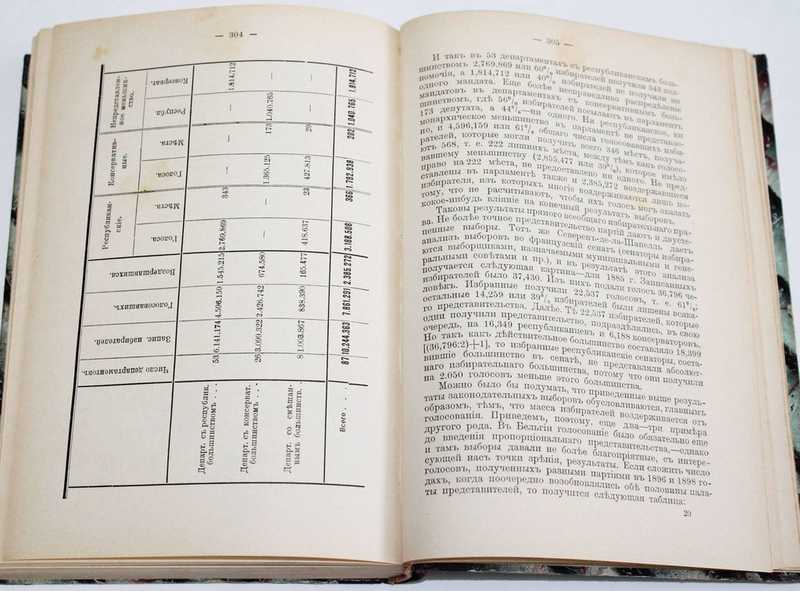 — 304 —
Число департаментовъ.
Запис. избирателей.
Голосовавшихъ.
Воздержавшихся.
Республиканскіе.
Голоса.
Мѣста.
Консервативные.
Голоса.
Мѣста.
Непредставленное меньшинство.
Республ.
Консерват.
Департ. съ республик. большинствомъ . . .
53 6.141.174 4.596.150 1.545.215 2.769.869 343 — — — 1.814.712
Департ. съ консерват. большинствомъ . . .
26 3.099.322 2.426.742 674.580 — — 1.365.125 173 1.040.765 —
Департ. со смѣшаннымъ большинств. .
8 1.003.867 838.390 165.477 418.637 23 427.813 29 — —
Всего . . .
87 10.244.363 7.861.291 2.385.272 3.188.506 366 1.792.938 202 1.040.765 1.814.712
— 305 —
И такъ въ 53 департаментахъ съ республиканскимъ боль-
шинствомъ 2,769,869 или 60% избирателей получили 343 пол-
номочія, а 1,814,712 или 40% избирателей не получили ни
одного мандата. Еще болѣе несправедливо распредѣленіе
мандатовъ въ департаментахъ съ консервативнымъ боль-
шинствомъ, гдѣ 56% избирателей посылаютъ въ парламентъ
173 депутата, а 44%—ни одного. Ни республиканское, ни
монархическое меньшинство въ парламентѣ не представле-
но, и 4,596,159 или 61% общаго числа голосовавшихъ изби-
рателей, которые могли получить всего 346 мѣстъ, получа-
ютъ 568, т. е. 222 лишнихъ мѣста, между тѣмъ какъ голосо-
вавшему меньшинству (2,855,477 или 39%), которое имѣло
право на 222 мѣста, не предоставлено ни одного. Не пред-
ставлены въ парламентѣ также и 2,385,272 воздержавшихся
избирателя, изъ которыхъ многіе воздерживаются лишь по-
тому, что не расчитываютъ, чтобы ихъ голосъ могъ оказать
какое-нибудь вліяніе на конечный результатъ выборовъ.
Таковы результаты прямого всеобщаго избирательнаго пра-
ва. Не болѣе точное представительство партій даютъ и двусте-
пенные выборы. Тотъ же Северенъ-де-ля-Шапелль даетъ
анализъ выборовъ во французскій сенатъ (сенаторы избира-
ются выборщиками, назначаемыми муниципальными и гене-
ральными совѣтами и пр.), и въ результатѣ этого анализа
получается слѣдующая картина—для 1885 г. Записанныхъ
избирателей было 37,430. Изъ нихъ подали голосъ 36,796 че-
ловѣкъ. Избранные получили 22,537 голосовъ, т. е. 61%;
остальные 14,259 или 39% избирателей были лишены всяка-
го представительства. Далѣе. Тѣ 22,537 избирателей, которые
одни получили представительство, подраздѣлялись, въ свою
очередь, на 16,349 республиканцевъ и 6,188 консерваторовъ.
Но такъ какъ дѣйствительное большинство составляло 18,399
[(36,796:2)+1], то избранные республиканскіе сенаторы, соста-
вившіе большинство въ сенатѣ, не представляли абсолют-
наго избирательнаго большинства, потому что они получили
на 2.050 голосовъ меньше этого большинства.
Можно было бы подумать, что приведенные выше резуль-
таты законодательныхъ выборовъ обусловливаются, главнымъ
образомъ, тѣмъ, что масса избирателей воздерживается отъ
голосованія. Приведемъ, поэтому, еще два—три примѣра
другого рода. Въ Бельгіи голосованіе было обязательно еще
до введенія пропорціональнаго представительства,—однако
и тамъ выборы давали не болѣе благопріятные, съ интере-
сующей насъ точки зрѣнія, результаты. Если сложить число
голосовъ, полученныхъ разными партіями въ 1896 и 1898 го-
дахъ, когда поочередно возобновлялись обѣ половины пала-
ты представителей, то получится слѣдующая таблица:
20